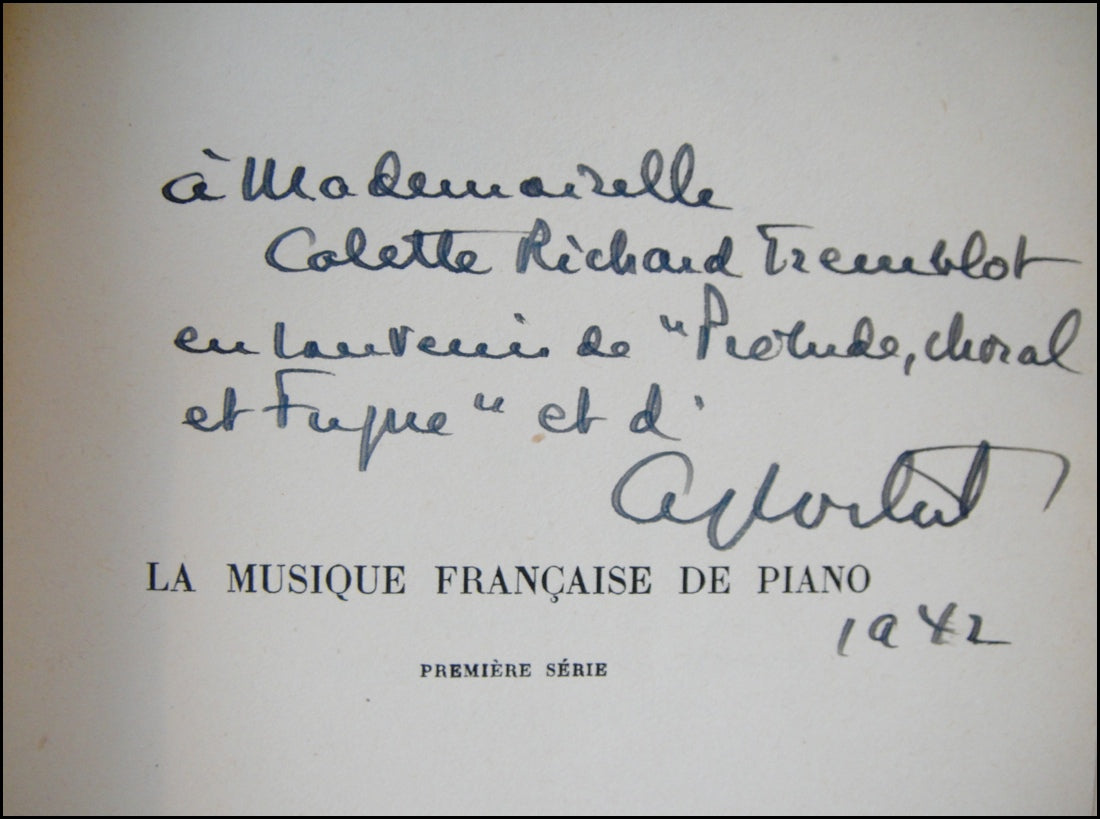 à Mademoiselle
Colette Richard Tremblot
en souvenir de "Prélude, choral
et Fugue" et d'
A Cortot
LA MUSIQUE FRANÇAISE DE PIANO
1942
PREMIÈRE SÉRIE